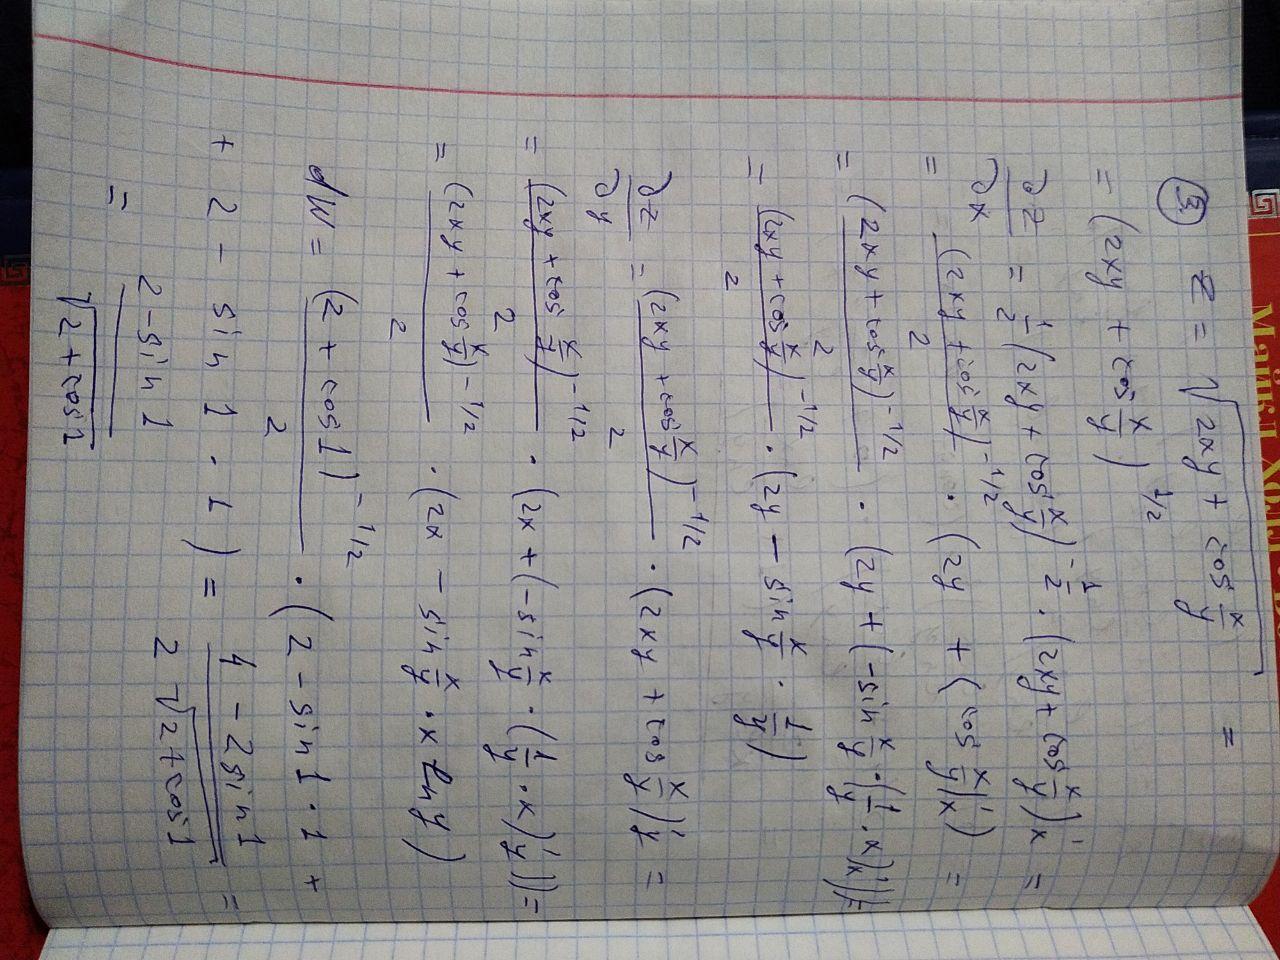 Майкл Холл
3. z = √(2xy + cos x/y) =
= (2xy + cos x/y)^1/2
∂z/∂x = 1/2 (2xy + cos x/y)^-1/2 · (2xy + cos x/y)'x =
= (2xy + cos x/y)^-1/2 / 2 · (2y + (cos x/y)'x) =
= (2xy + cos x/y)^-1/2 / 2 · (2y + (-sin x/y · (1/y · x)'x)) =
= (2xy + cos x/y)^-1/2 / 2 · (2y - sin x/y · 1/y)
∂z/∂y = (2xy + cos x/y)^-1/2 / 2 · (2xy + cos x/y)'y =
= (2xy + cos x/y)^-1/2 / 2 · (2x + (-sin x/y · (1/y · x)'y)) =
= (2xy + cos x/y)^-1/2 / 2 · (2x - sin x/y · x ln y)
dW = (2 + cos 1)^-1/2 / 2 · (2 - sin 1 · 1 +
+ 2 - sin 1 · 1) = (4 - 2 sin 1) / (2 √(2 + cos 1)) =
= (2 - sin 1) / √(2 + cos 1)